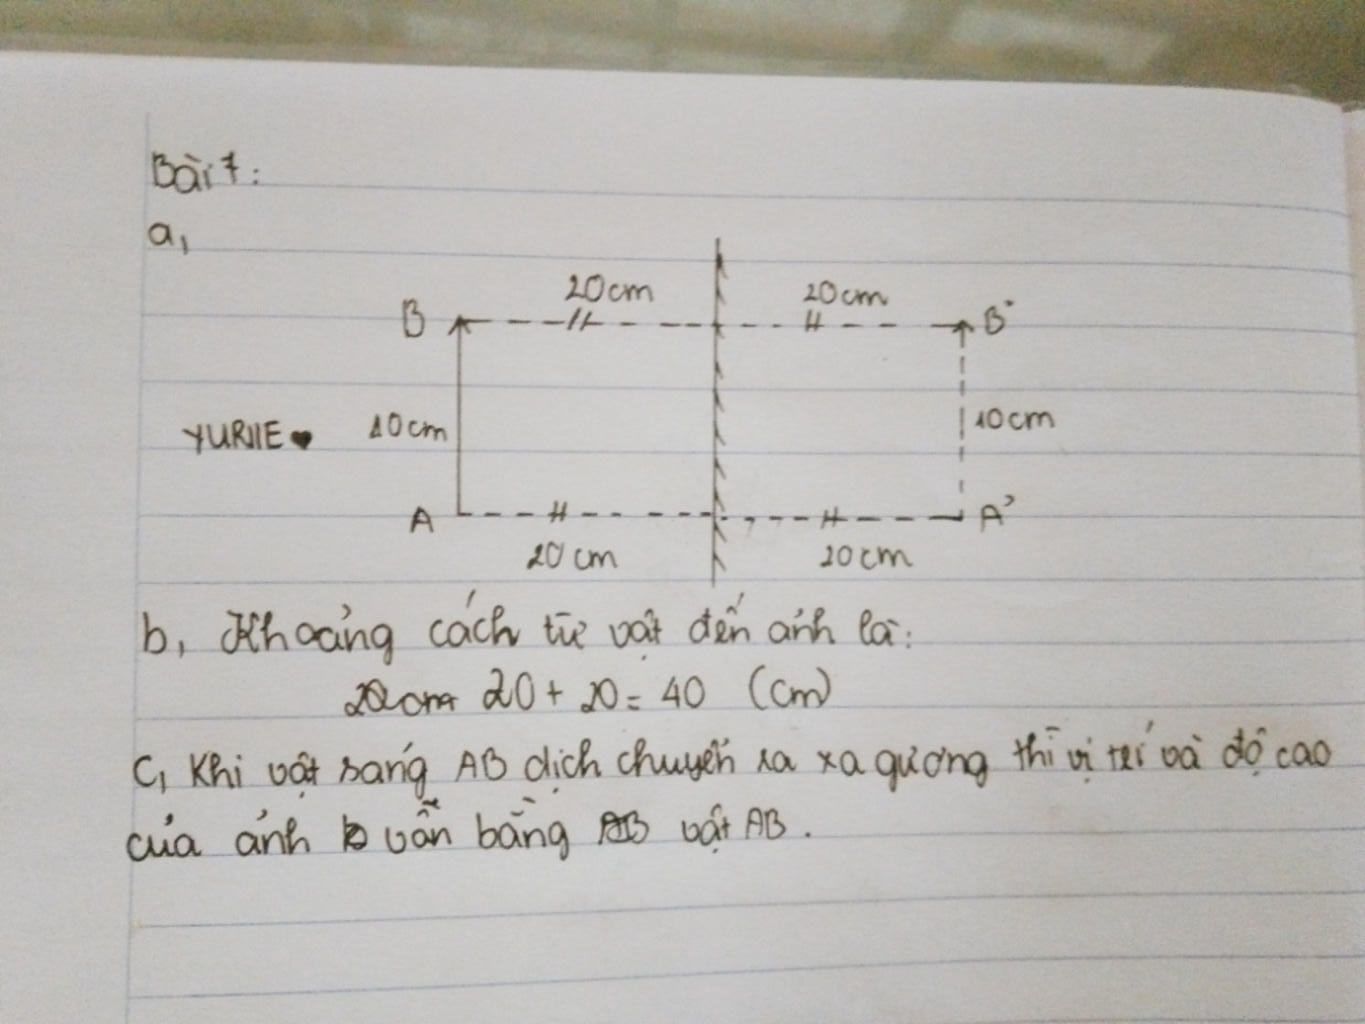 Bài 7:
a,
20cm 20cm
B B'
YURIIE♥ 10cm 10cm
A A'
20cm 20cm
b, Khoảng cách từ vật đến ảnh là:
20+ 20= 40 (cm)
c, Khi vật sáng AB dịch chuyển ra xa gương thì vị trí và độ cao
của ảnh vẫn bằng vật AB.